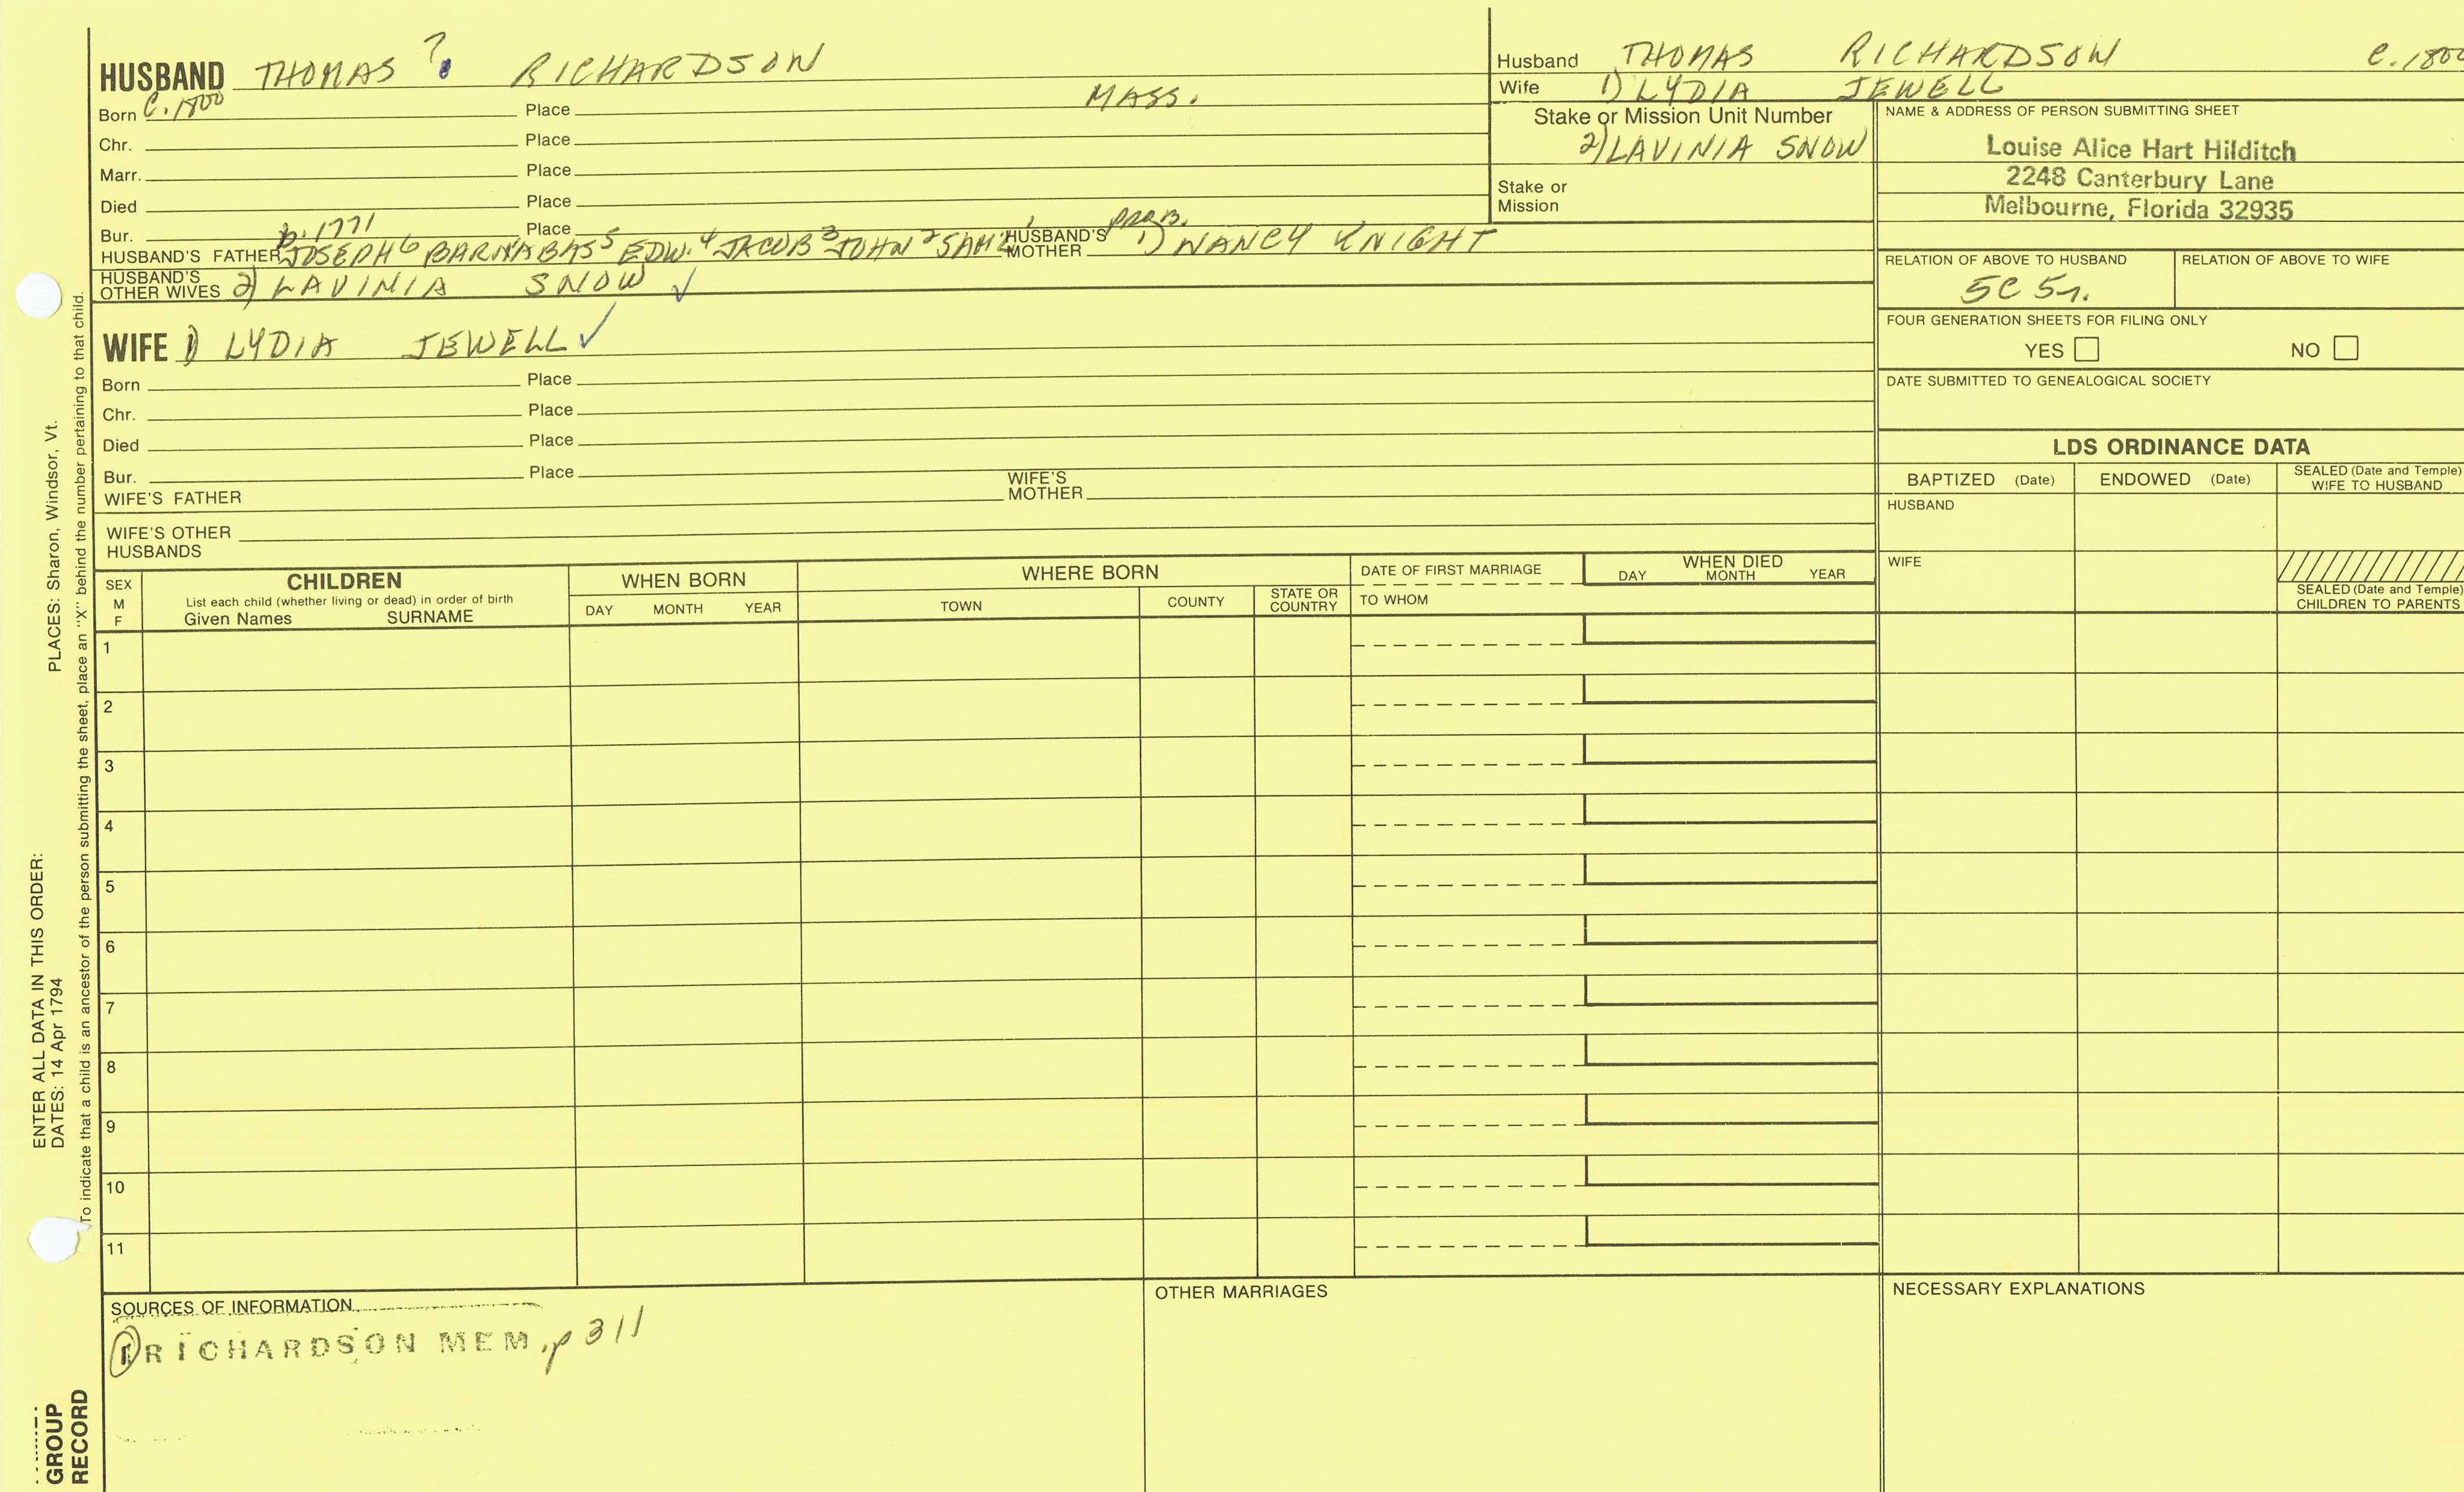 HUSBAND THOMAS ? RICHARDSON
Born C. 1800 Place MASS.
Chr. Place
Marr. Place
Died Place
Bur. Place
b. 1771 PROB.
HUSBAND'S FATHER JOSEPH 6 BARNABAS 5 EDW. 4 JACOB 3 JOHN 2 SAM'L 1 HUSBAND'S MOTHER 1) NANCY KNIGHT
HUSBAND'S OTHER WIVES 2) LAVINIA SNOW ✓
WIFE 1) LYDIA JEWELL ✓
Born Place
Chr. Place
Died Place
Bur. Place
WIFE'S FATHER WIFE'S MOTHER
WIFE'S OTHER HUSBANDS
Husband THOMAS RICHARDSON C. 1800
Wife 1) LYDIA JEWELL
Stake or Mission Unit Number
2) LAVINIA SNOW
Stake or Mission
NAME & ADDRESS OF PERSON SUBMITTING SHEET
Louise Alice Hart Hilditch
2248 Canterbury Lane
Melbourne, Florida 32935
RELATION OF ABOVE TO HUSBAND RELATION OF ABOVE TO WIFE
5C 5r.
FOUR GENERATION SHEETS FOR FILING ONLY
YES NO
DATE SUBMITTED TO GENEALOGICAL SOCIETY
LDS ORDINANCE DATA
BAPTIZED (Date) ENDOWED (Date) SEALED (Date and Temple) WIFE TO HUSBAND
HUSBAND
WIFE
SEALED (Date and Temple) CHILDREN TO PARENTS
SEX M F
CHILDREN
List each child (whether living or dead) in order of birth
Given Names SURNAME
WHEN BORN
DAY MONTH YEAR
WHERE BORN
TOWN COUNTY STATE OR COUNTRY
DATE OF FIRST MARRIAGE
TO WHOM
WHEN DIED
DAY MONTH YEAR
1
2
3
4
5
6
7
8
9
10
11
SOURCES OF INFORMATION
1 RICHARDSON MEM, p 311
OTHER MARRIAGES
NECESSARY EXPLANATIONS
ENTER ALL DATA IN THIS ORDER:
DATES: 14 Apr 1794 PLACES: Sharon, Windsor, Vt.
To indicate that a child is an ancestor of the person submitting the sheet, place an "X" behind the number pertaining to that child.
GROUP
RECORD